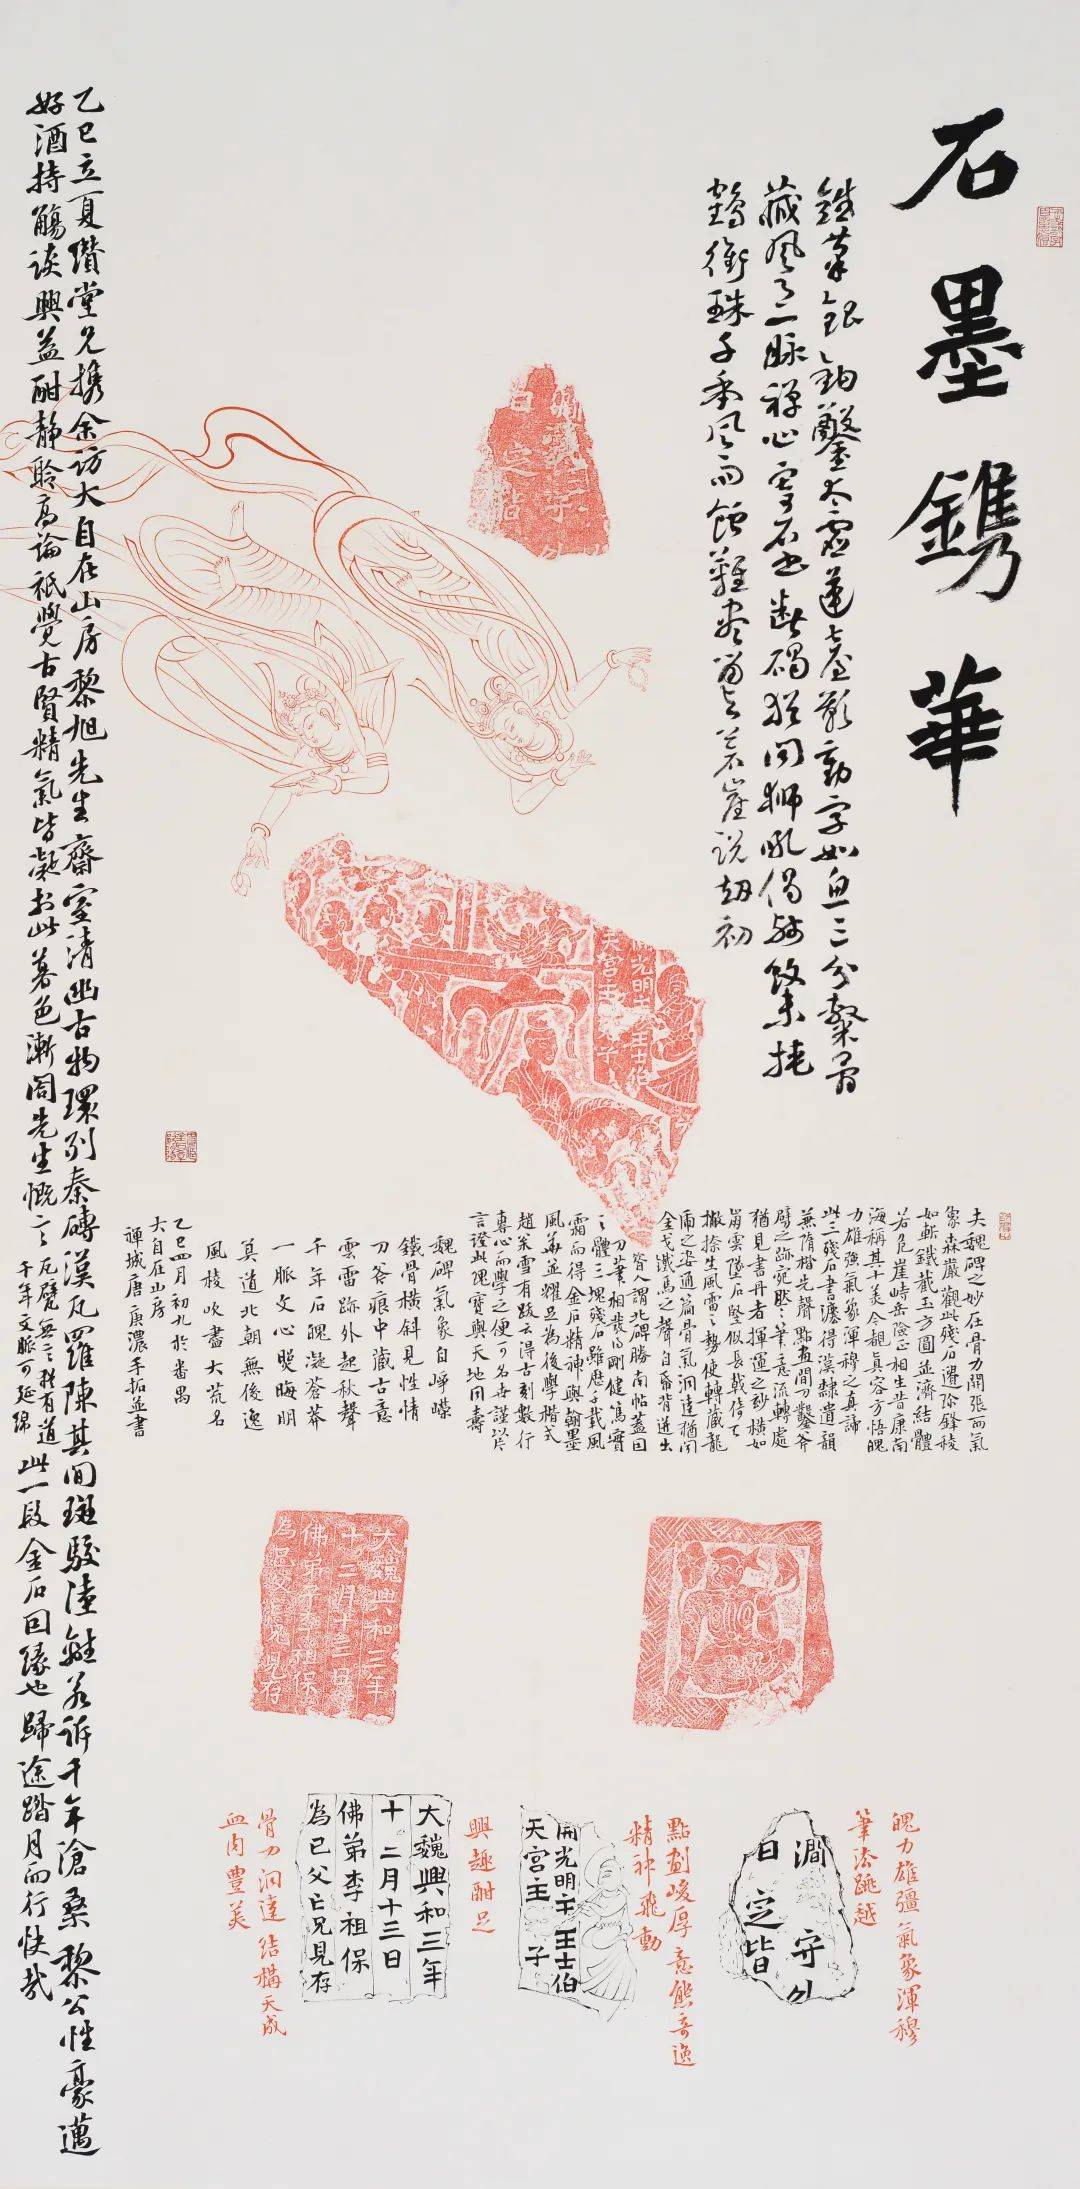 石墨鐫華
鐵筆銀鉤鑿太虛蓮龕影動字如魚三分槃骨
藏風雨一脈禪心寄石書斷碣猶聞獅吼偈殘紋未掩
鶴銜珠千季風雨蝕難盡留与蒼崖說劫初
夫魏碑之妙在骨力開張而氣
象森嚴觀此殘石遺除鋒稜
如斬鐵截玉方圓並濟結體
若危崖峙岳險正相生昔康南
海稱其十美今觀真容方悟魄
力雄強氣象渾穆之真諦
此三殘石書灋得漢隸遺韻
兼隋楷先聲點畫間刀鑿斧
劈之跡宛然筆意流轉處
猶見書丹者揮運之妙橫如
崩雲墜石堅似長戟倚天
撇捺生風雷之勢使轉藏龍
虎之姿通篇骨氣洞達猶聞
金戈鐵馬之聲自希背迸出
昔人謂北碑勝南帖蓋因
刀筆相發得剛健篤實
之體三塊殘石雖歷千載風
霜而得金石精神與翰墨
風華並耀足為後學楷式
趙
宋雪有跋云得古刻數行
專心而學之便可名世謹以
言證此瑰寶與天地同壽
魏碑氣象自崢嶸
鐵骨橫斜見性情
刀斧痕中藏古意
雲雷跡外起秋聲
千年石魄凝蒼莽
一脈文心照晦明
莫道北朝無後逸
風稜吹盡大荒名
乙巳四月初九於番禺
大自在山房
禪城唐庚濃手拓並書
乙巳立夏纘堂兄攜余訪大自在山房黎旭先生齋室清幽古物環列秦磚漢瓦羅陳其間斑駁陸離若訴千年滄桑黎公性豪邁
好酒持觴談興益酣靜聆高論祇覺古賢精氣皆凝於此暮色漸闔先生慨之
瓦甓無言猶有道
千年文脈可延綿
此一段金石因緣也歸途踏月而行快哉
開光明主王士伯
天宮主子
大魏興和三年
十二月十三日
佛弟子李祖保
為已父亡兄見存
魄力雄彊氣象渾穆
筆法跳越
澗守外
日定皆
點劃峻厚意態奇逸
精神飛動
開光明主王士伯
天宮主子
興趣酣足
大魏興和三年
十二月十三日
佛弟李祖保
為已父亡兄見存
骨力洞達結構天成
血肉豐美